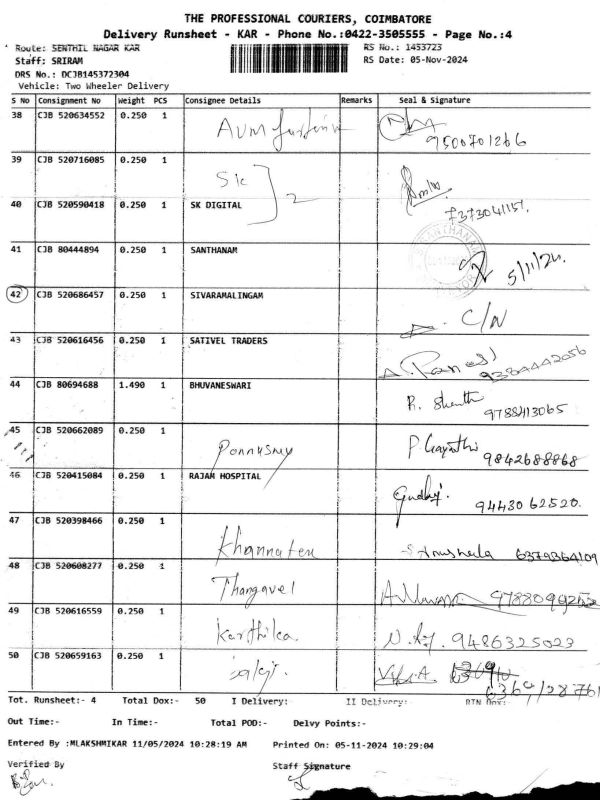 THE PROFESSIONAL COURIERS, COIMBATORE
Delivery Runsheet - KAR - Phone No.:0422-3505555 - Page No.:4
Route: SENTHIL NAGAR KAR RS No.: 1453723
Staff: SRIRAM RS Date: 05-Nov-2024
DRS No.: DCJB145372304
Vehicle: Two Wheeler Delivery
S No Consignment No Weight PCS Consignee Details Remarks Seal & Signature
38 CJB 520634552 0.250 1
9500701266
39 CJB 520716085 0.250 1 SK
2
40 CJB 520590418 0.250 1 SK DIGITAL
7373041151.
41 CJB 80444894 0.250 1 SANTHANAM
5/11/24.
42 CJB 520686457 0.250 1 SIVARAMALINGAM
C/N
43 CJB 520616456 0.250 1 SATIVEL TRADERS
9384442056
44 CJB 80694688 1.490 1 BHUVANESWARI
9788413065
45 CJB 520662089 0.250 1 P. Gayathri
9842688868
46 CJB 520415084 0.250 1 RAJAM HOSPITAL
9443062520.
47 CJB 520398466 0.250 1
6379364109
48 CJB 520608277 0.250 1 Thangavel
49 CJB 520616559 0.250 1 Karthika
9486325023
50 CJB 520659163 0.250 1
Tot. Runsheet:- 4 Total Dox:- 50 I Delivery:- II Delivery:- RTN Dox:-
Out Time:- In Time:- Total POD:- Delvy Points:-
Entered By :MLAKSHMIKAR 11/05/2024 10:28:19 AM Printed On: 05-11-2024 10:29:04
Verified By Staff Signature